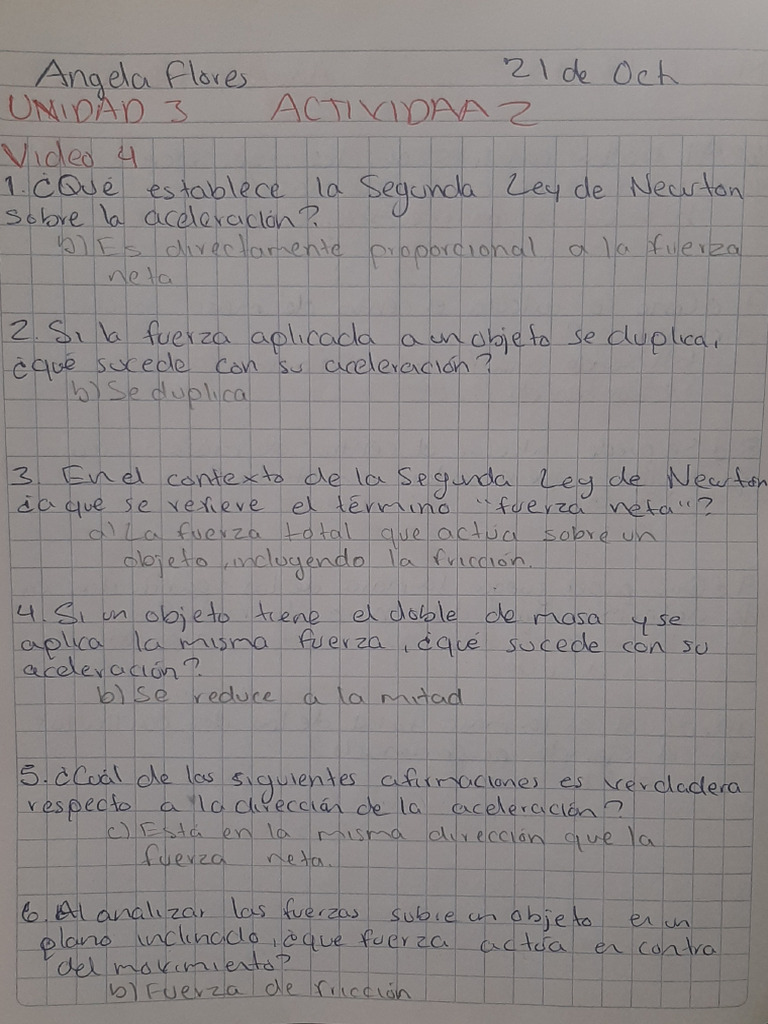 Angela Flores 21 de Och
UNIDAD 3 ACTIVIDAA 2
Video 4
1. ¿Qué establece la Segunda Ley de Newton
sobre la aceleración?
b) Es directamente proporcional a la fuerza
neta
2. Si la fuerza aplicada a un objeto se duplica,
¿qué sucede con su aceleración?
b) Se duplica
3 En el contexto de la Segunda Ley de Newton
¿a que se refiere el término "fuerza neta"?
d) La fuerza total que actúa sobre un
objeto, incluyendo la fricción.
4. Si un objeto tiene el doble de masa y se
aplica la misma fuerza, ¿qué sucede con su
aceleración?
b) Se reduce a la mitad
5. ¿Cuál de las siguientes afirmaciones es verdadera
respecto a la dirección de la aceleración?
c) Está en la misma dirección que la
fuerza neta.
6. Al analizar las fuerzas sobre un objeto en un
plano inclinado, ¿que fuerza actúa en contra
del movimiento?
b) Fuerza de fricción